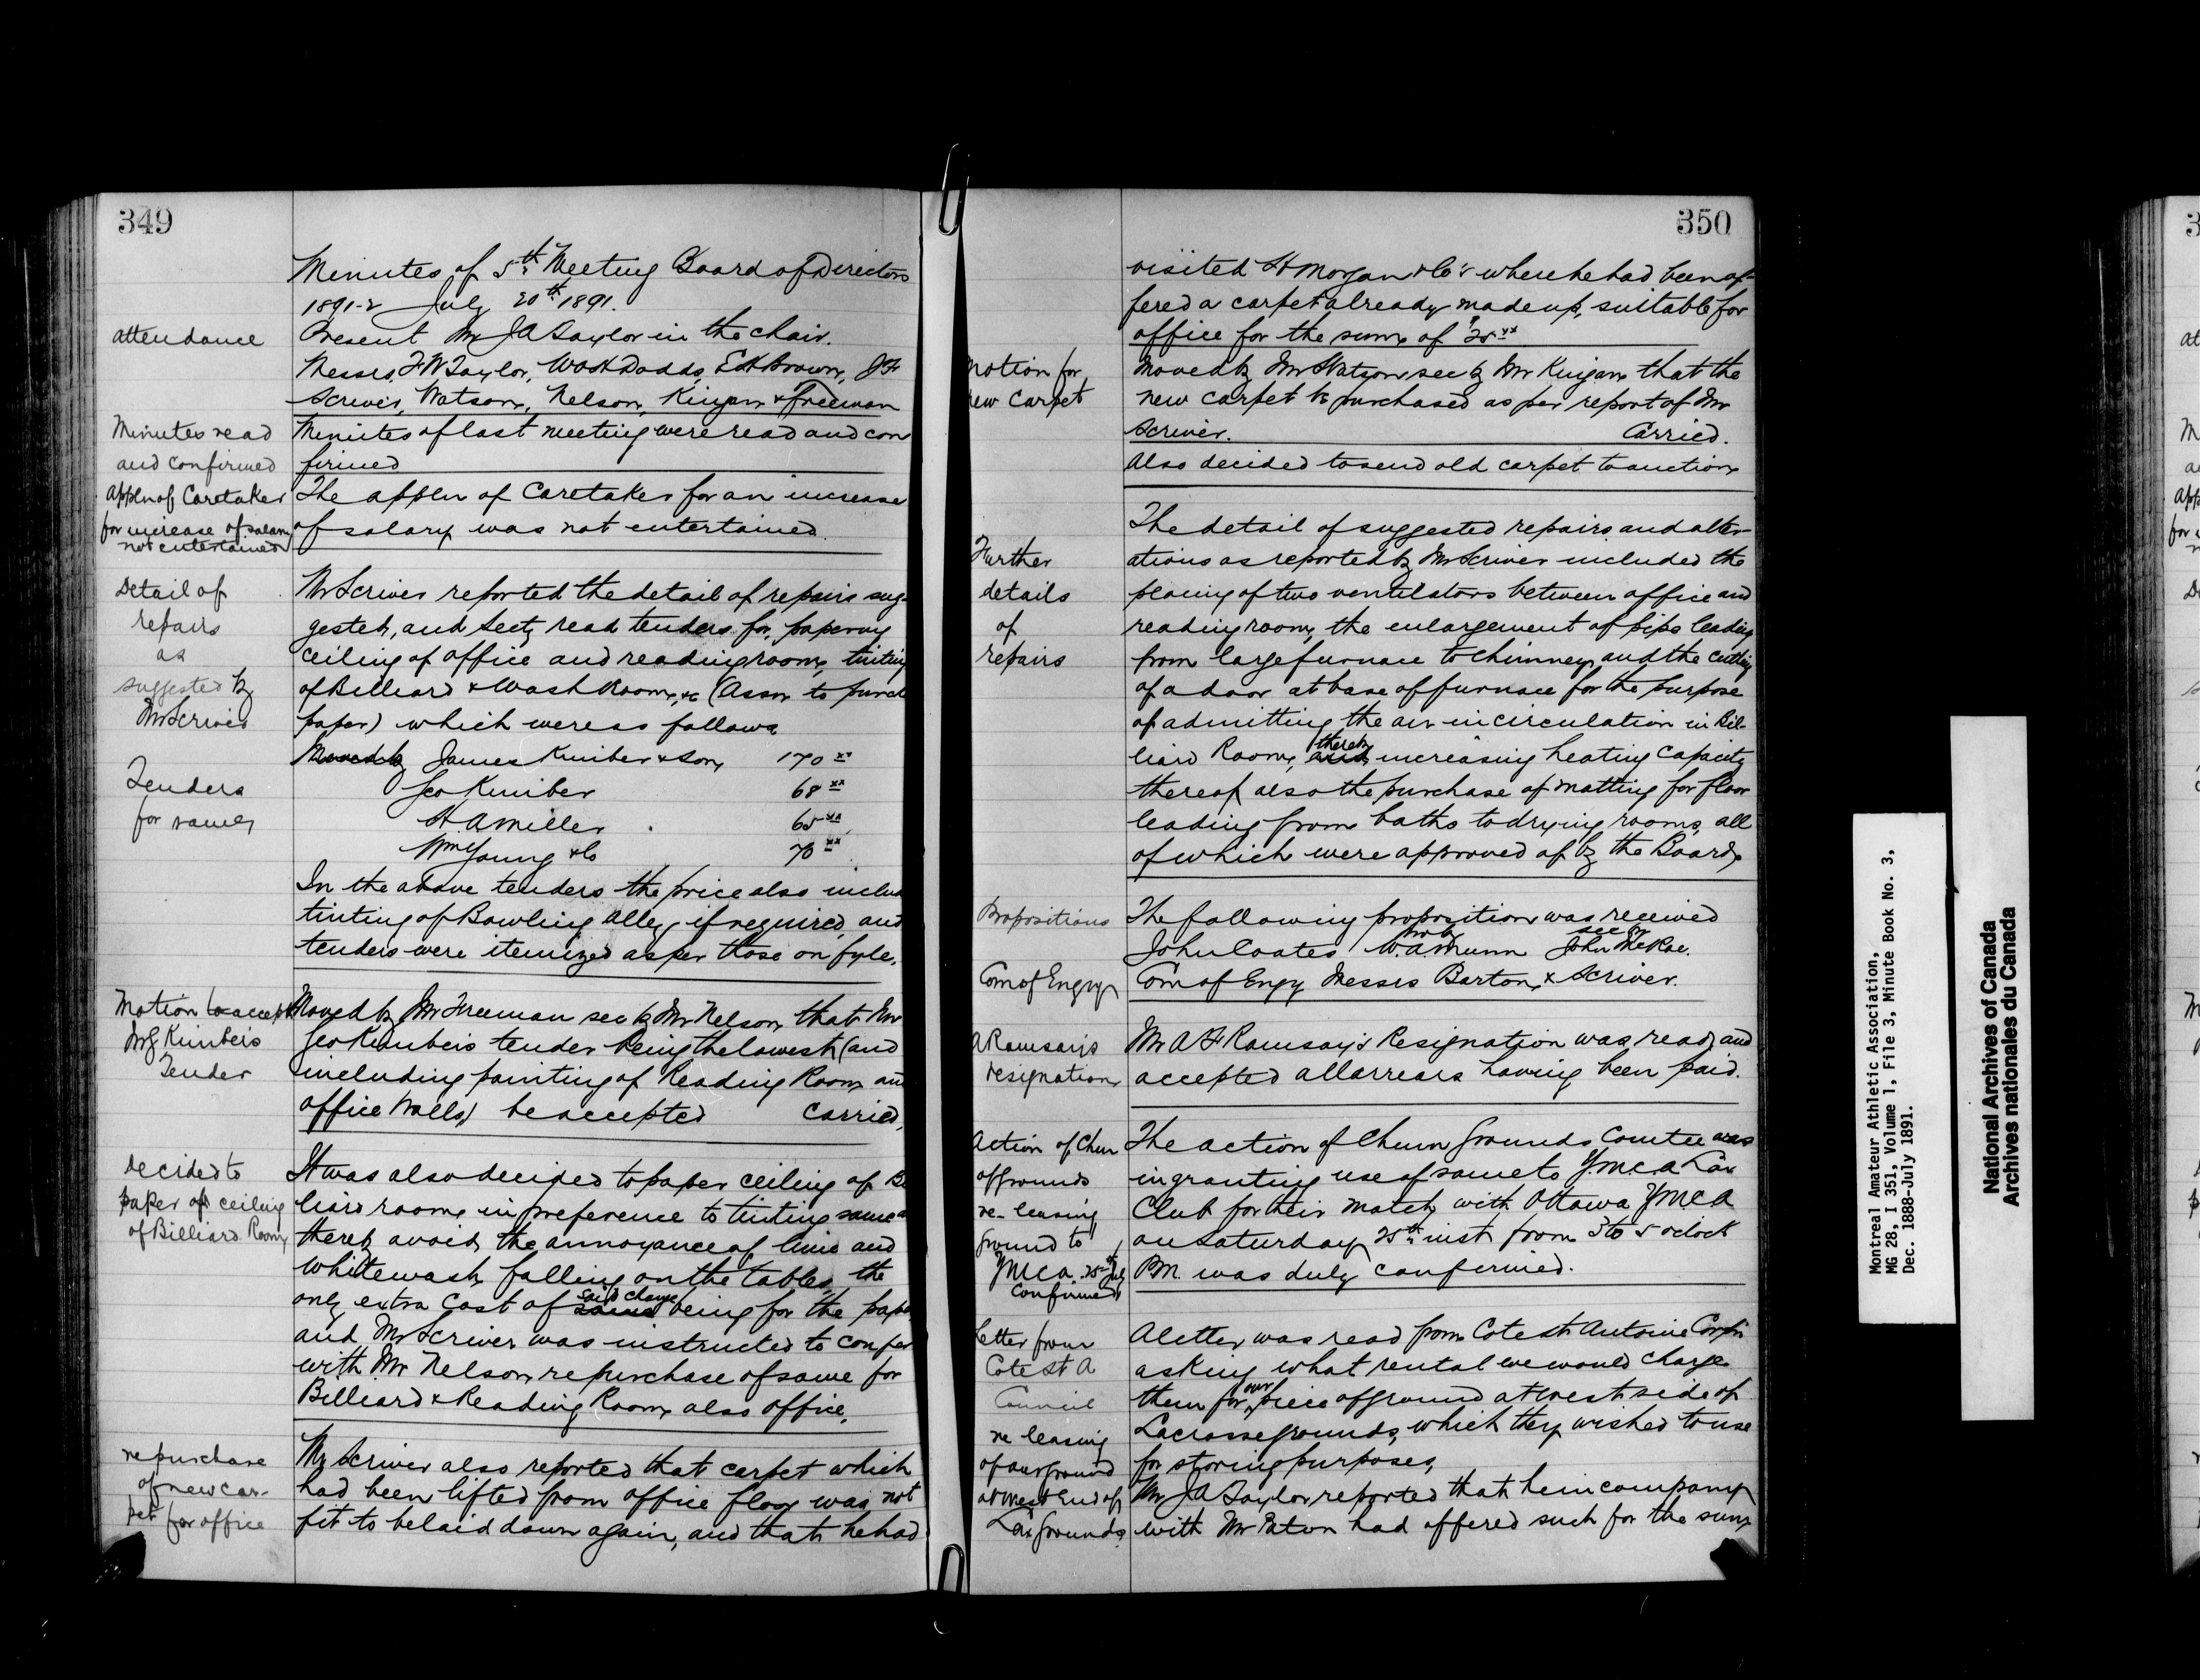 349
Minutes of 5th Meeting Board of Directors
1891-2 July 20th 1891.
attendance
Present Mr J A Taylor in the chair.
Messrs, F W Taylor, Dodds, E H Brown, J F
Scriver, Watson, Nelson, Kingan & Freeman
Minutes read
and confirmed
Minutes of last meeting were read and con
firmed
Appln of Caretaker
for increase of salary
not entertained
The appln of Caretaker for an increase
of salary was not entertained.
Detail of
repairs
as
suggested by
Mr Scriver
Mr Scriver reported the detail of repairs sug-
gested, and Secty read tenders for papering
ceiling of office and reading room, tinting
of Billiard & Wash Room, &c (Assn to purch
paper) which were as follows
Tenders
for same
Moved by James Kimber & Son 170 xx
Geo Kimber 68 xx
H. A Miller 65 xx
Wm Young & Co 70 xx
In the above tenders the price also includ
tinting of Bowling alley, if required, and
tenders were itemized as per those on fyle.
Motion to accept
Mr G Kimber's
Tender
Moved by Mr Freeman sec by Mr Nelson that Mr
Geo Kimber's tender being the lowest (and
including painting of Reading Room and
office walls) be accepted carried.
Decided to
paper of ceiling
of Billiard Room
It was also decided to paper ceiling of Bi
liard room in preference to tinting same a
thereby avoid the annoyance of lime and
whitewash falling on the tables, the
only extra cost of same said change being for the pape
and Mr Scriver was instructed to confer
with Mr Nelson re purchase of same for
Billiard & Reading Room also office.
re purchase
of new car-
pet for office
Mr Scriver also reported that carpet which
had been lifted from office floor was not
fit to be laid down again, and that he had
350
visited H Morgan & Co's where he had been of-
fered a carpet already made up, suitable for
office for the sum of $25 xx
Motion for
new Carpet
Moved by Mr Watson sec by Mr Kingan that the
new carpet be purchased as per report of Mr
Scriver. Carried.
Also decided to send old carpet to auction
Further
details
of
repairs
The detail of suggested repairs and alter-
ations as reported by Mr Scriver included the
placing of two ventilators between office and
reading room, the enlargement of pipe leading
from large furnace to chimney, and the cutting
of a door at base of furnace for the purpose
of admitting the air in circulation in Bil-
liard Room, and thereby increasing heating capacity
thereof also the purchase of matting for floor
leading from baths to drying rooms, all
of which were approved of by the Board.
Propositions
The following proposition was received
John Coates prop by W. A. Munn sec by John McRae.
Com of Engy
Com of Engy Messrs Barton, & Scriver.
A Ramsay's
resignation
Mr A F Ramsay's Resignation was read and
accepted all arrears having been paid.
Action of Chmn
of grounds
re leasing
ground to
YMCA. 25th July
confirmed
The action of Chmn Grounds Comtee was
in granting use of same to Y.M.C.A Lax
Club for their match with Ottawa YMCA
on Saturday 25th inst from 3 to 5 oclock
P.M. was duly confirmed.
Letter from
Cote St A
Council
re leasing
of our ground
at west End of
Lax Grounds
A letter was read from Cote St Antoine Corpn
asking what rental we would charge
them for our piece of ground at west side of
Lacrosse grounds, which they wished to use
for storing purposes,
Mr J A Taylor reported that he in company
with Mr Paton had offered such for the sum
Montreal Amateur Athletic Association,
MG 28, I 351, Volume 1, File 3, Minute Book No. 3,
Dec. 1888-July 1891.
National Archives of Canada
Archives nationales du Canada